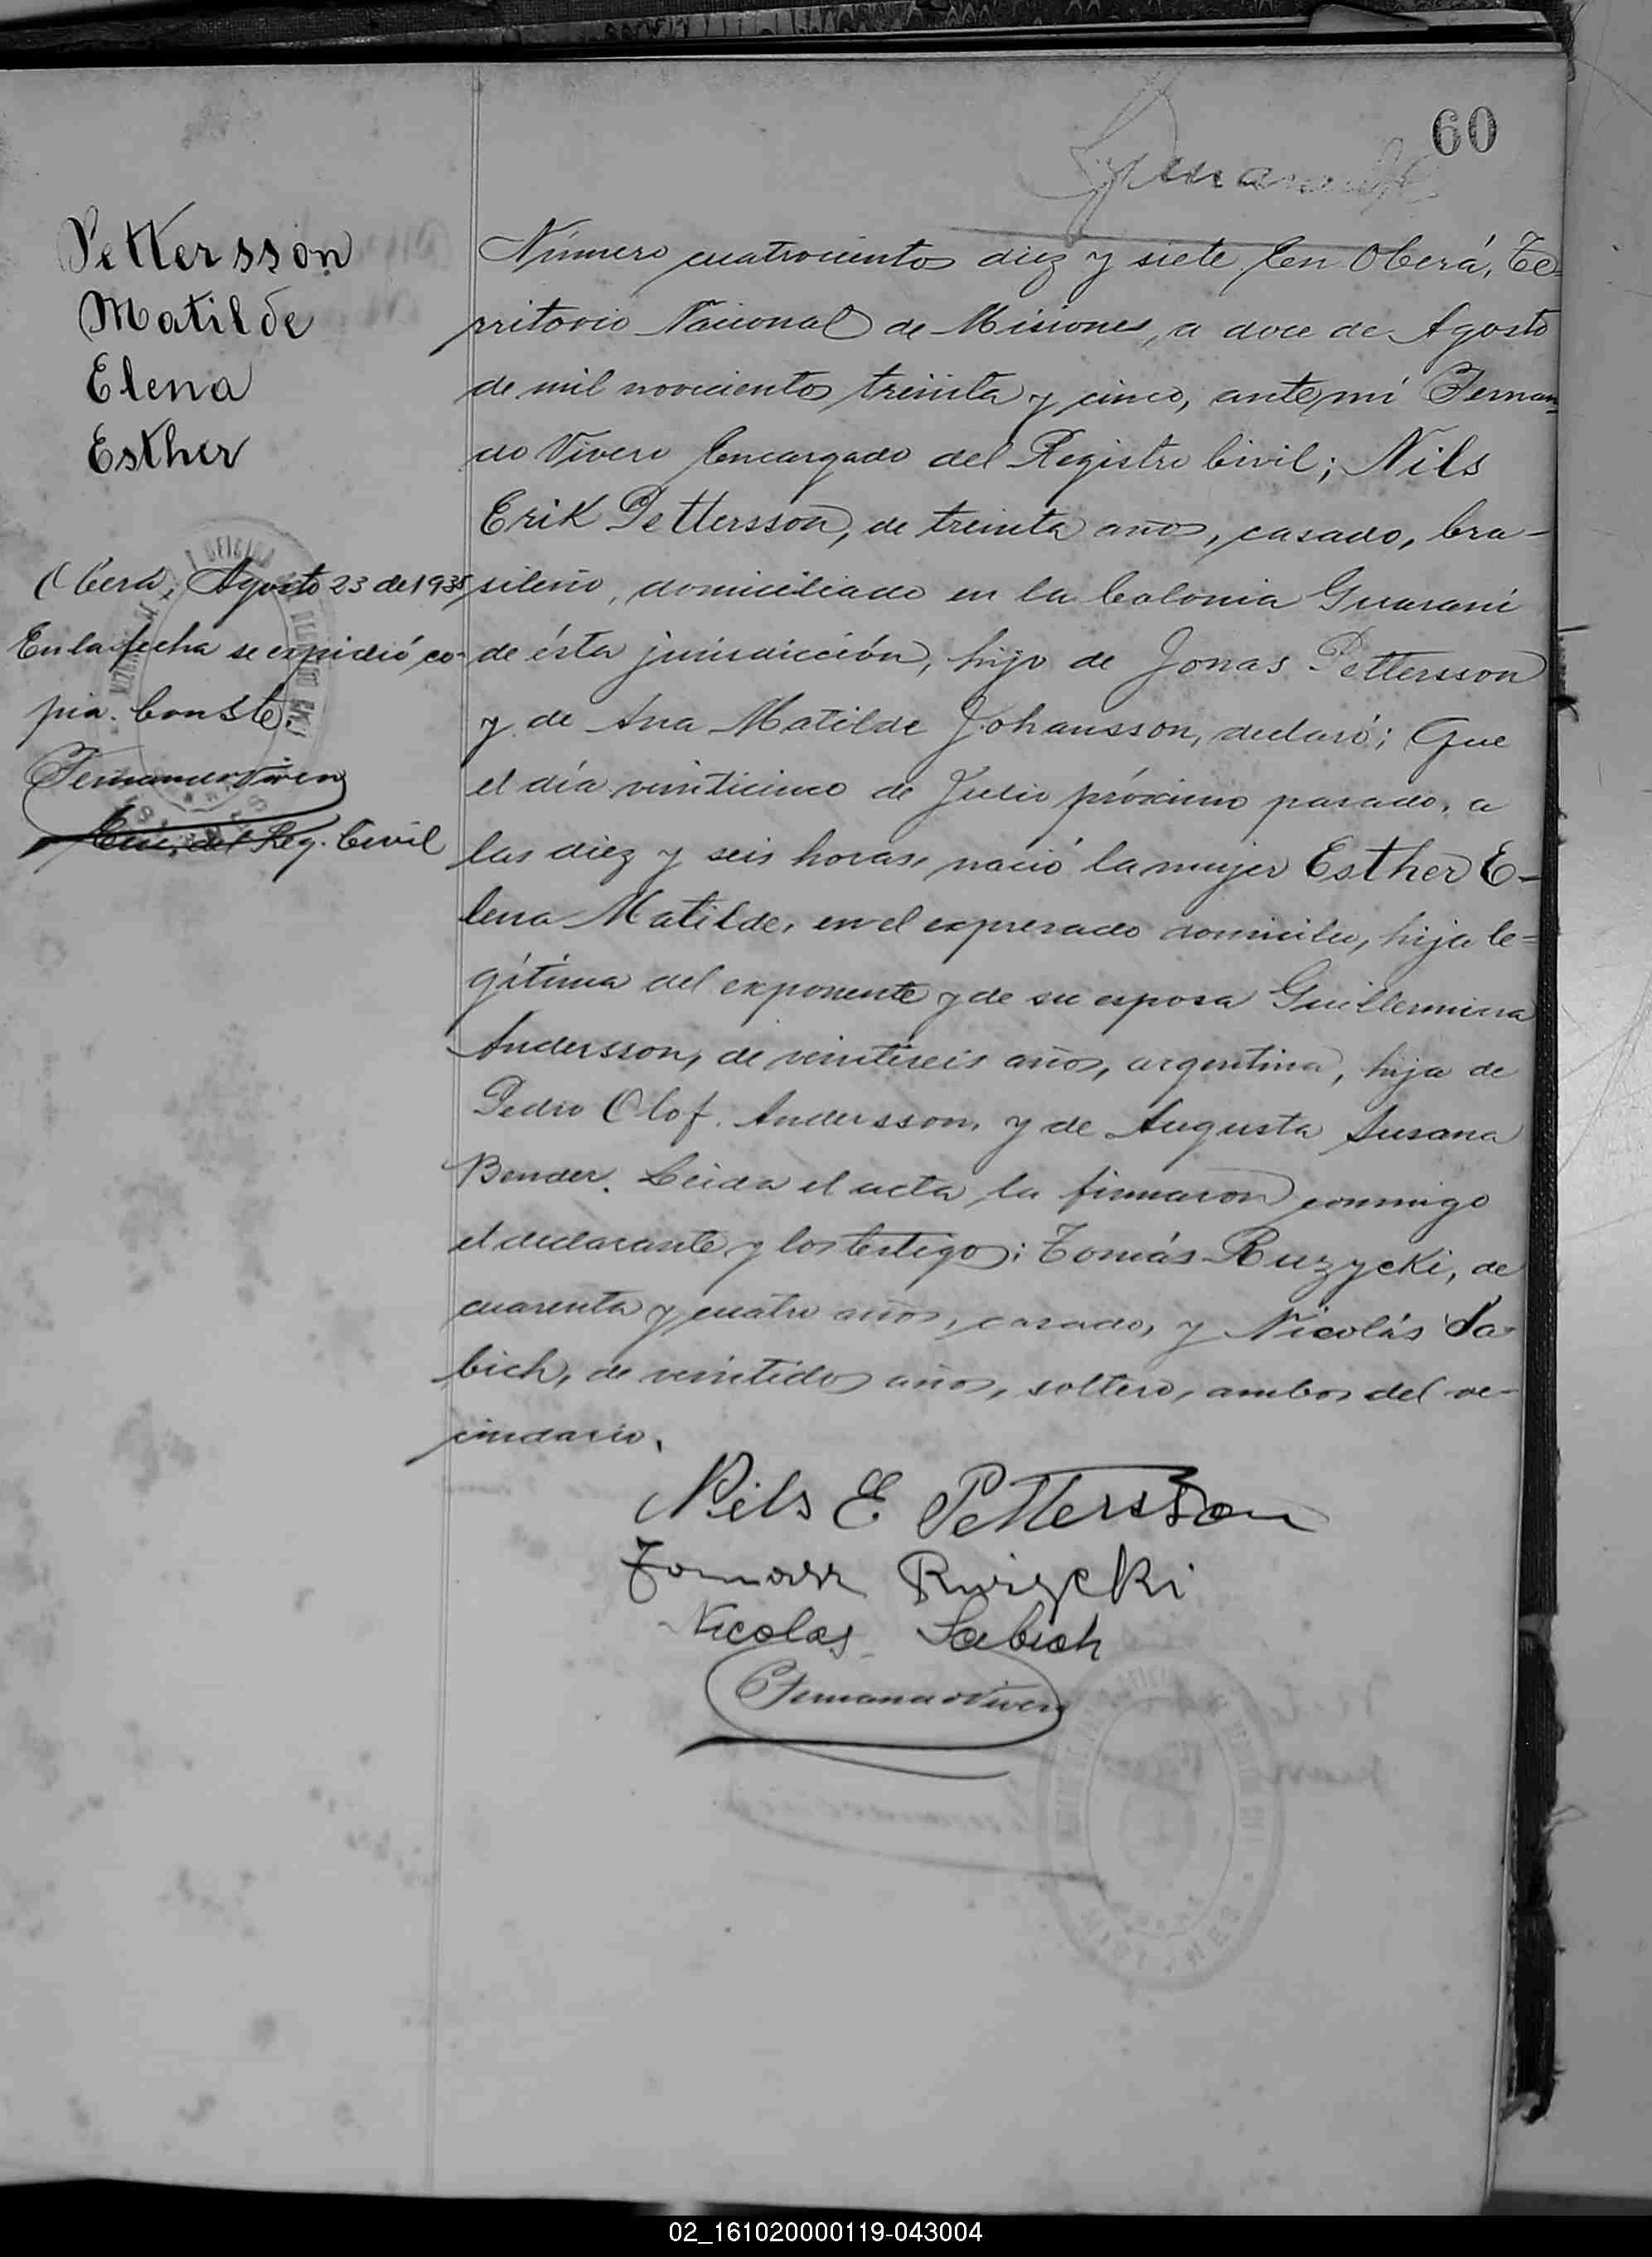 60
Pettersson
Matilde
Elena
Esther
Oberá, Agosto 23 de 1935
En la fecha se expidió co-
pia. Conste.
Fernando Vivero
Enc. del Reg. Civil
Número cuatrocientos diez y siete. En Oberá, Te-
rritorio Nacional de Misiones, a doce de Agosto
de mil novecientos treinta y cinco, ante mí Fernan-
do Vivero Encargado del Registro Civil; Nils
Erik Pettersson, de treinta años, casado, bra-
sileño, domiciliado en la Colonia Guaraní
de ésta jurisdicción, hijo de Jonas Pettersson
y de Ana Matilde Johansson, declaró; Que
el día veinticinco de Julio próximo pasado, a
las diez y seis horas, nació la mujer Esther E-
lena Matilde, en el expresado domicilio, hija le-
gítima del exponente y de su esposa Guillermina
Andersson, de veintiseis años, argentina, hija de
Pedro Olof Andersson, y de Augusta Susana
Bender. Leida el acta la firmaron conmigo
el declarante y los testigos: Tomás Ruzycki, de
cuarenta y cuatro años, casado, y Nicolás Sa-
bich, de veintidos años, soltero, ambos del ve-
cindario.
Nils E Pettersson
Tomasz Ruzycki
Nicolas Sabich
Fernando Vivero
02_161020000119-043004